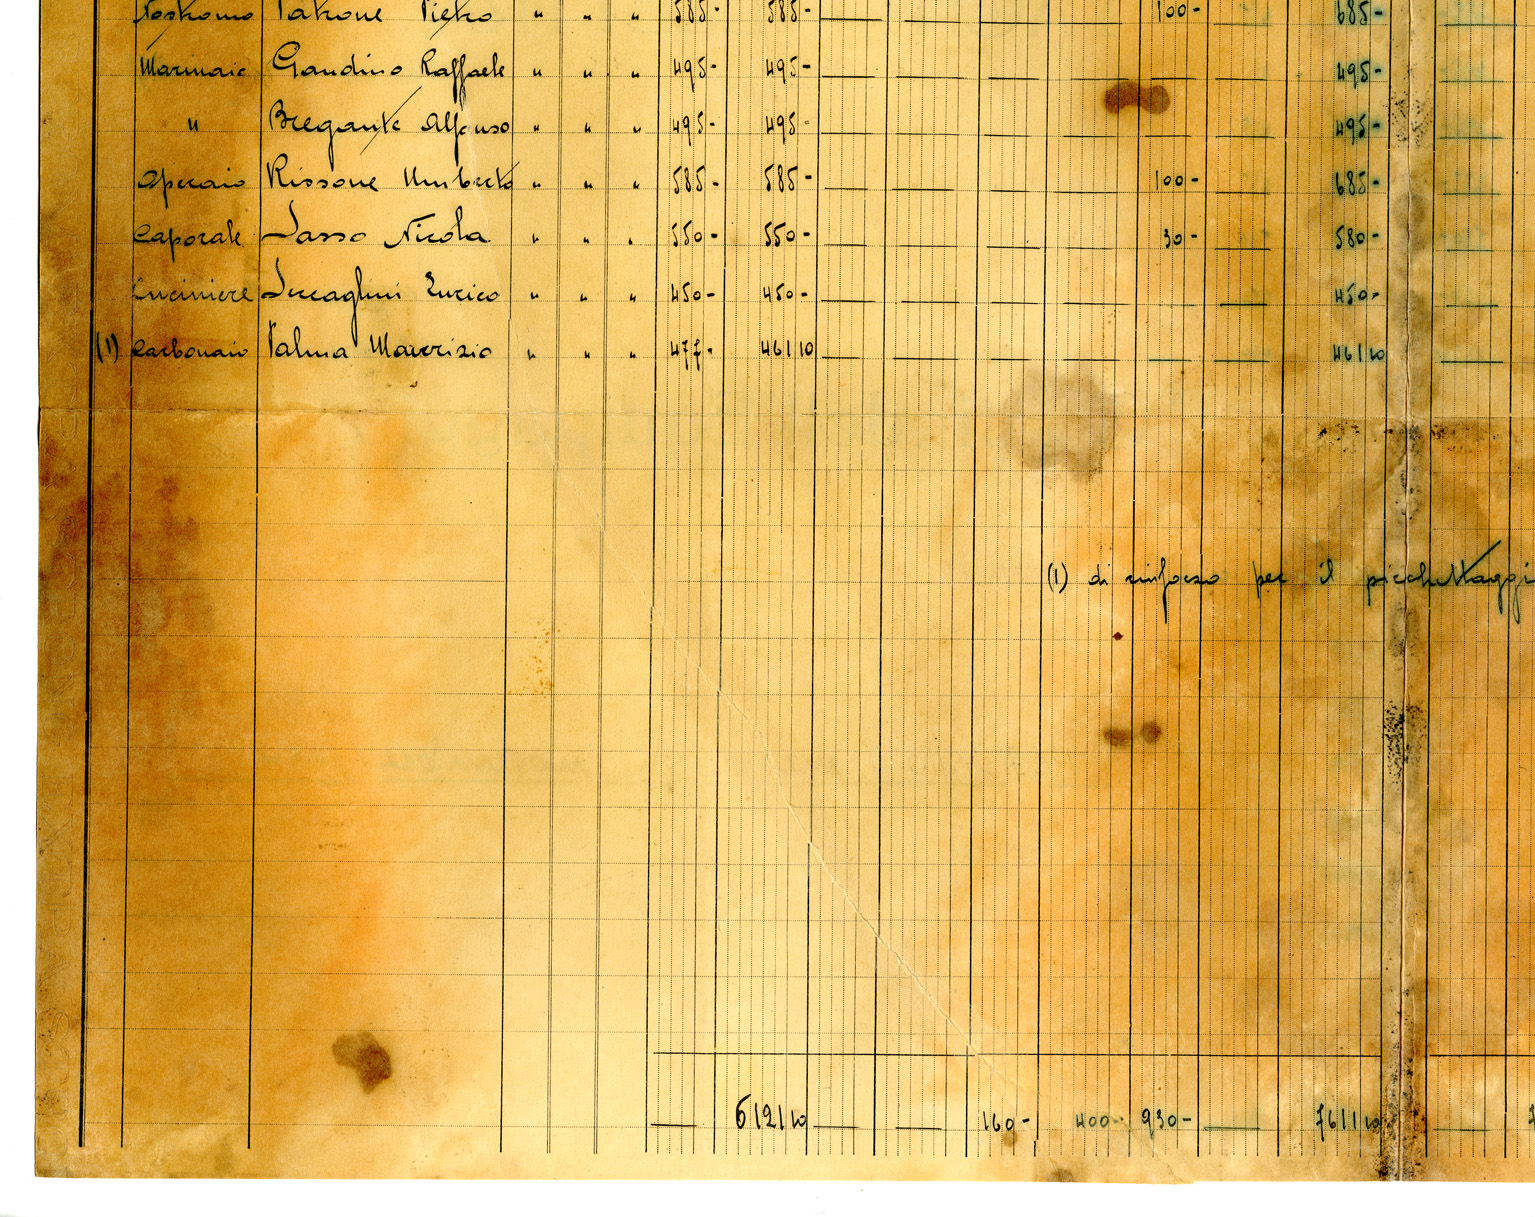 Nostromo Patrone Pietro " " " 585- 585- 100- 685-
Marinaio Gandino Raffaele " " " 495- 495- 495-
" Bregante Alfonso " " " 495- 495- 495-
Operaio Rissone Umberto " " " 585- 585- 100- 685-
Caporale Sasso Nicola " " " 550- 550- 30- 580-
Cuciniere Enrico " " " 450- 450- 450-
(1) Carbonaio Palma Maurizio " " " 477- 461 10 461 10
(1) di rinforzo per il picchettaggi
6121 10 160- 400- 930- 7611 10